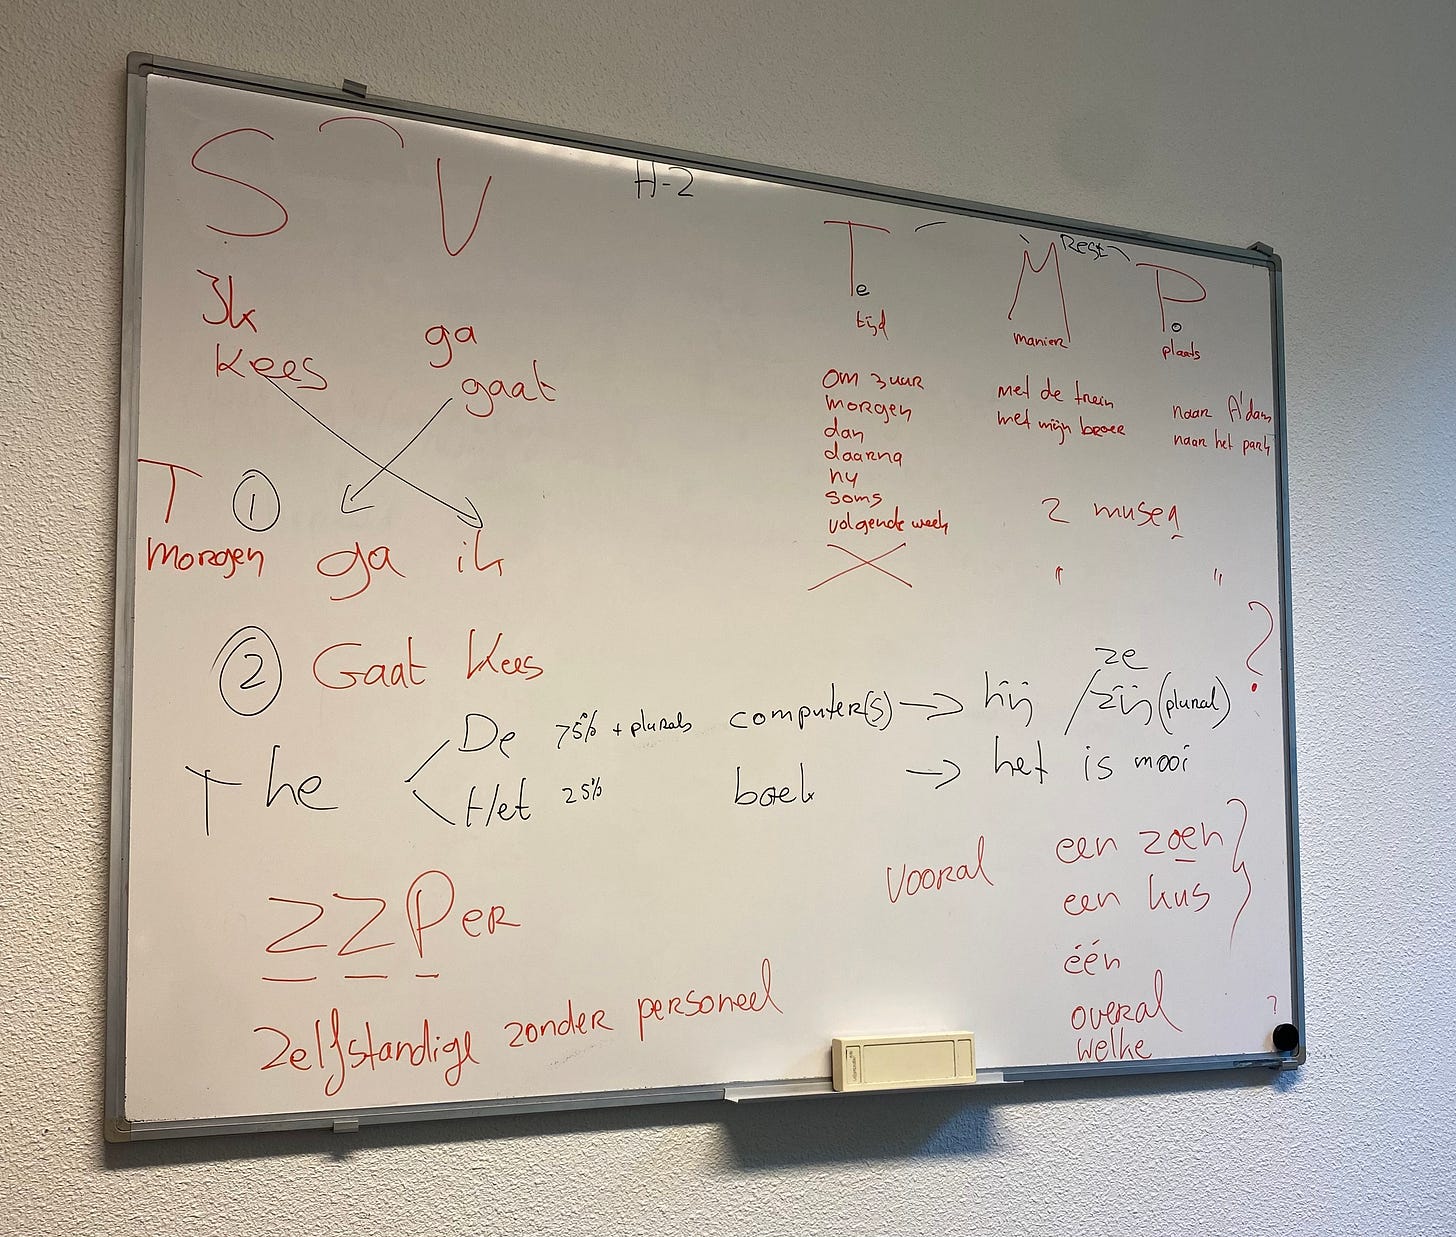 S V
H-2
Te M Rest Po
tijd manier plaats
Ik ga
Kees gaat
om 3 uur met de trein naar A'dam
morgen met mijn broer naar het park
dan
daarna
nu
soms
volgende week
2 musea
T 1
morgen ga ik
" "
2 Gaat Kees ?
The
De 75% + plurals computer(s) → hij / ze zij (plural)
Het 25% boek → het is mooi
vooral een zoen
een kus
één
overal ?
welke
ZZPer
Zelfstandige zonder personeel